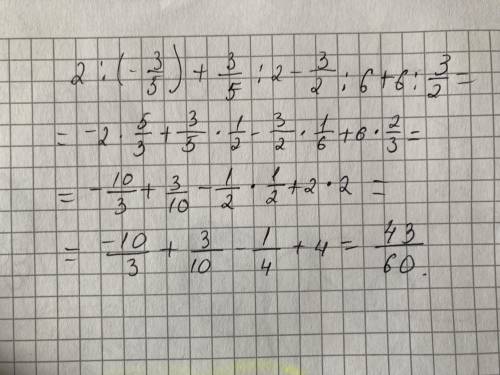 2 : (-3/5) + 3/5 : 2 - 3/2 : 6 + 6 : 3/2 =
= -2 · 5/3 + 3/5 · 1/2 - 3/2 · 1/6 + 6 · 2/3 =
= -10/3 + 3/10 - 1/2 · 1/2 + 2 · 2 =
= -10/3 + 3/10 - 1/4 + 4 = 43/60.